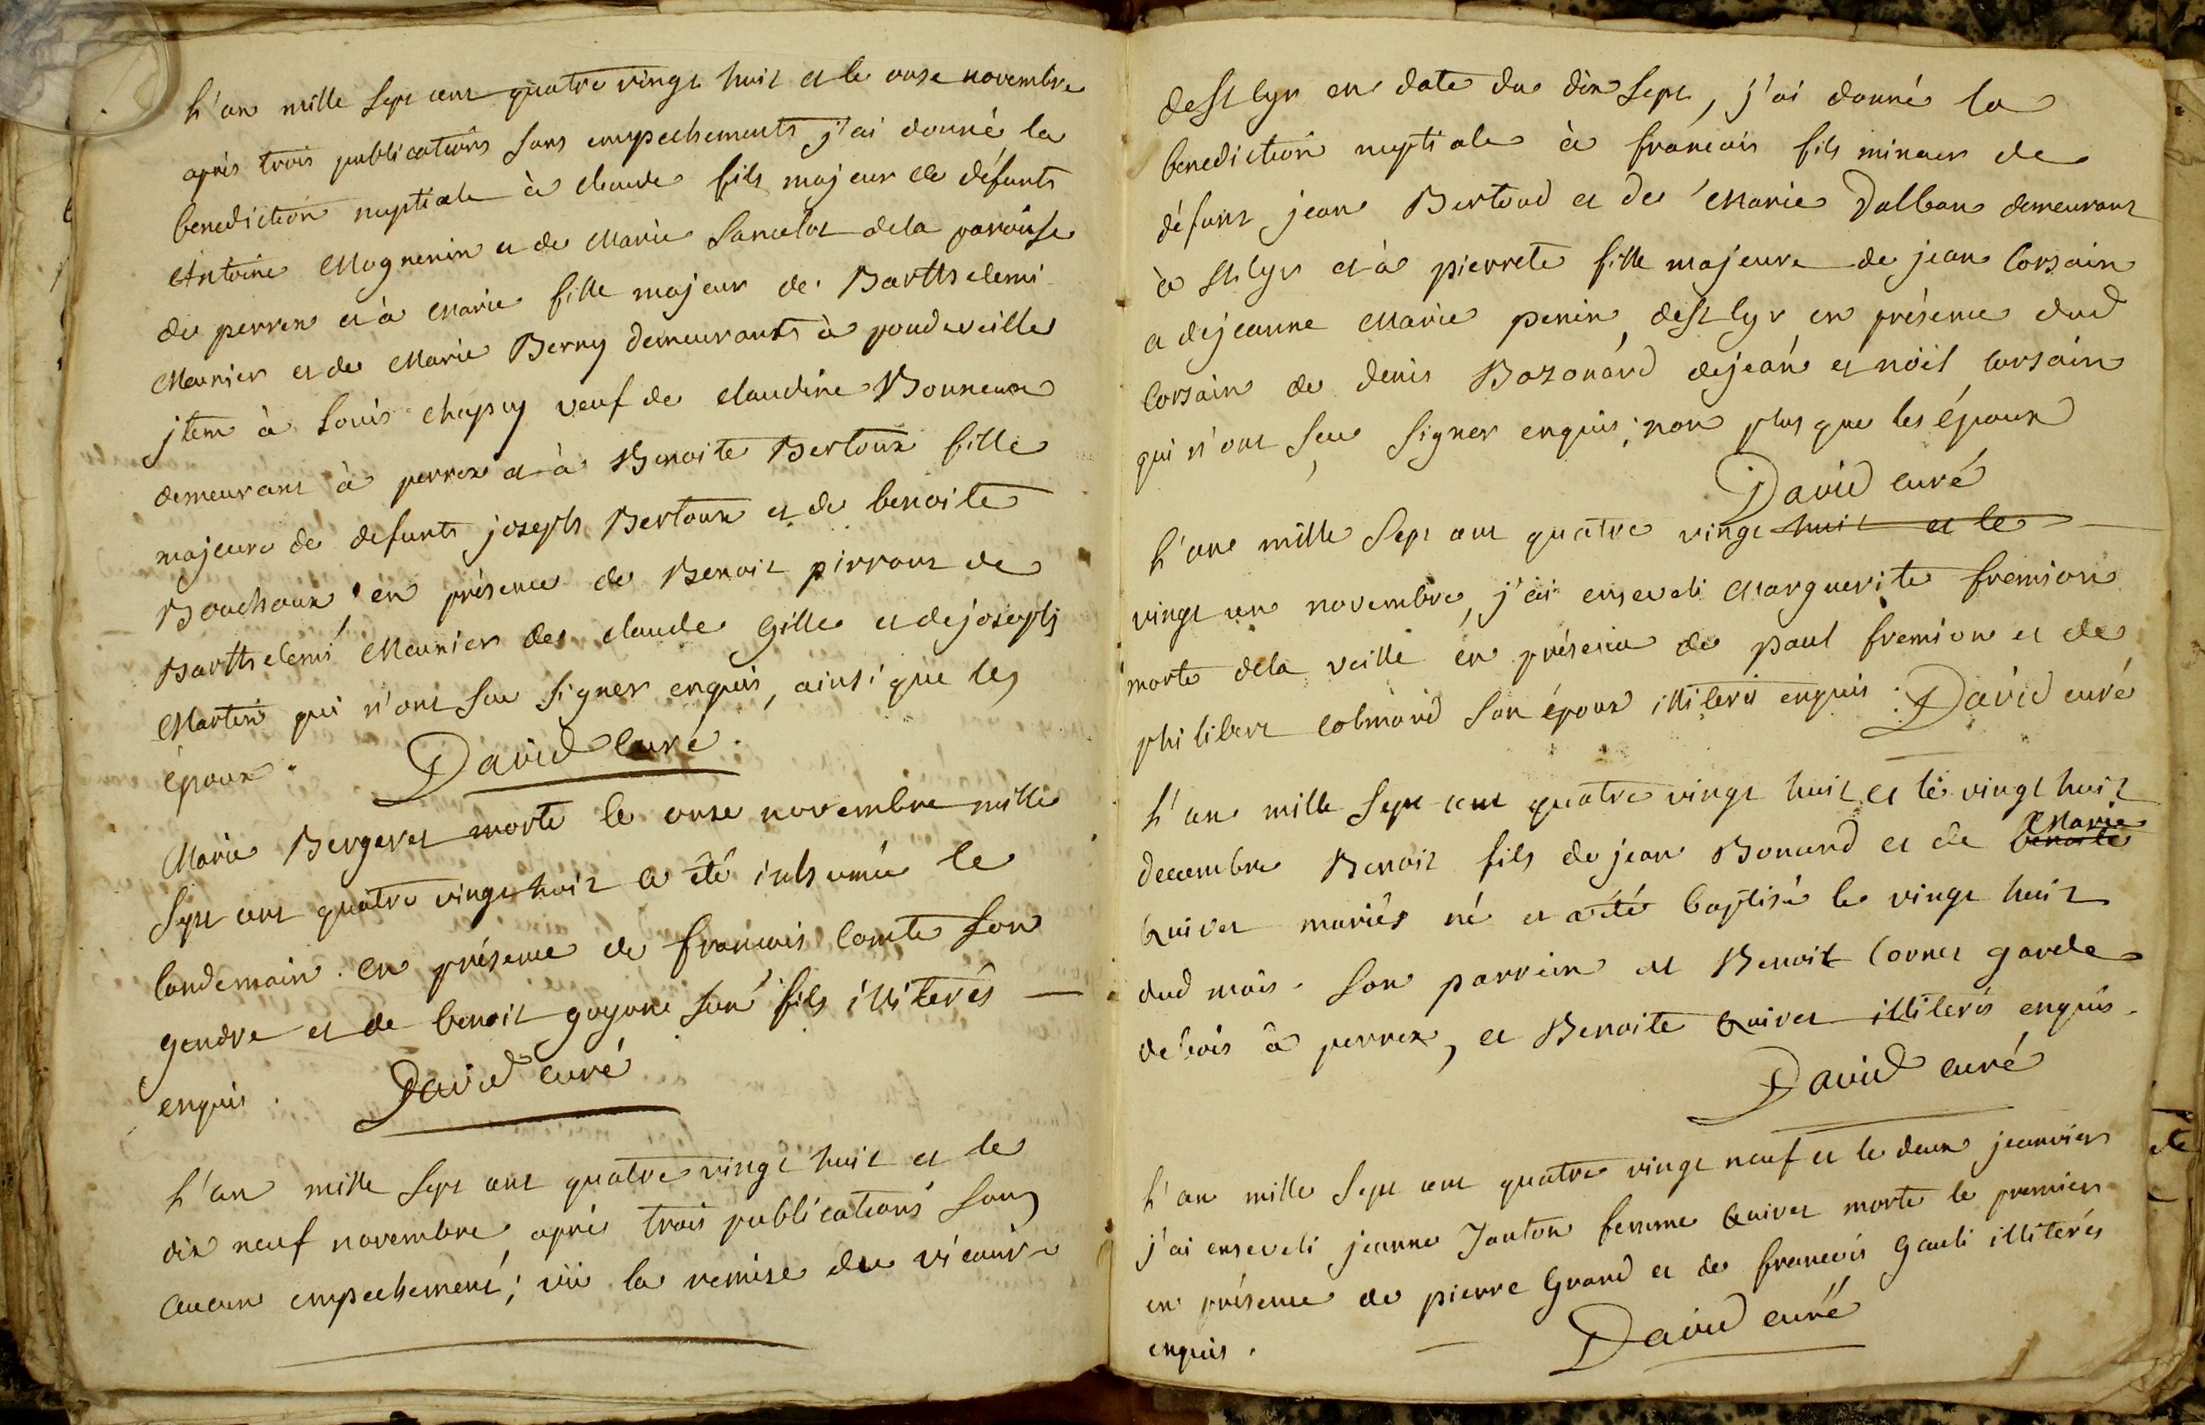 L'an mille sept cent quatre vingt huit et le onse novembre
après trois publications sans empechements j'ai donné la
benediction nuptiale à claude fils majeur de défunts
Antoine Magnenin et de Marie Lancelot dela paroisse
de perrex et à Marie fille majeur de Barthelemi
Meunier et de Marie Berry demeurants à pondeveille
jtem à Louis chapuy veuf de claudine Bonneux
demeurant à perrex et à Benoite Bertoux fille
majeure de defunts joseph Bertoux et de benoite
Bouchoux en présence de Benoit pirrout de
Barthelemi Meunier de claude Gille et dejoseph
Martin qui n'ont seu signer enquis, ainsi que les
époux. David curé.
Marie Bergeret morte le onse novembre mille
sept cent quatre vingt huit a été inhumée le
landemain. en présence de francois Comte son
gendre et de benoit goyone son fils illiterés
enquis. David curé
L'an mille sept cent quatre vingt huit et le
dix neuf novembre après trois publications sans
aucun empechement; vü la remise du vicaire
dest Cyr en date du dix sept, j'ai donné la
benediction nuptiale à francois fils mineur de
défunt jean Bertoud et de Marie Dalban demeurant
à st Cyr et à pierrete fille majeure de jean Corsain
a dejeanne Marie penin dest Cyr en présence dud
Corsain de denis Bozonard dejean et noël Corsain
qui n'ont seu signer enquis; non plus que les époux
David curé
L'an mille sept cent quatre vingt huit et le
vingt un novembre, j'ai enseveli Marguerite fremion
morte dela veille en présence de paul fremion et de
philibert Colmard son époux illiterés enquis. David curé
L'an mille sept cent quatre vingt huit et le vingt huit
decembre Benoit fils de jean Bonard et de benoite Marie
Quivet mariés né et a été baptisé le vingt huit
dud mois. son parrein et Benoit Cornet garde
debois à perrex, et Benoite Quivet illiterés enquis.
David curé
L'an mille sept cent quatre vingt neuf et le deux jeanvier
j'ai enseveli jeanne Janton femme Quivet morte le premier
en présence de pierre Grand et de francois Gauli illiterés
enquis. David curé